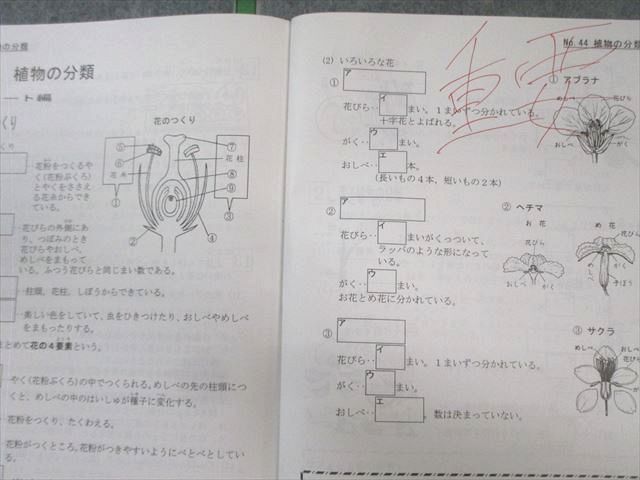 の分類
植物の分類
ート編
くり
花のつくり
⑤
⑥
花糸
①
②
⑦
花柱
⑧
⑨
③
④
花粉をつくるや
く(花粉ぶくろ)
とやくをささえ
る花糸からでき
ている。
花びらの外側にあ
り、つぼみのとき
花びらやおしべ、
めしべをまもって
いる。ふつう花びらと同じまい数である。
柱頭、花柱、しぼうからできている。
美しい色をしていて、虫をひきつけたり、おしべやめしべ
をまもったりする。
まとめて花の4要素という。
やく(花粉ぶくろ)の中でつくられる。めしべの先の柱頭につ
くと、めしべの中のはいしゅが種子に変化する。
花粉をつくり、たくわえる。
花粉がつくところ。花粉がつきやすいようにべとべとしてい
る。
No.44 植物の分類
重要
(2) いろいろな花
① ア
花びら‥イ まい。1まいずつ分かれている。
十字花とよばれる。
がく‥ウ まい。
おしべ‥エ 本。
(長いもの4本、短いもの2本)
② ア
花びら‥イ まいがくっついて、
ラッパのような形になって
いる。
がく‥ウ まい。
お花とめ花に分かれている。
③ ア
花びら‥イ まい。1まいずつ分かれている。
がく‥ウ まい。
おしべ‥エ 、数は決まっていない。
① アブラナ
めしべ
花びら
おしべ
がく
② ヘチマ
お花
め花
花びら
花びら
おしべ
がく
子ぼう
③ サクラ
めしべ
おしべ
花びら
がく